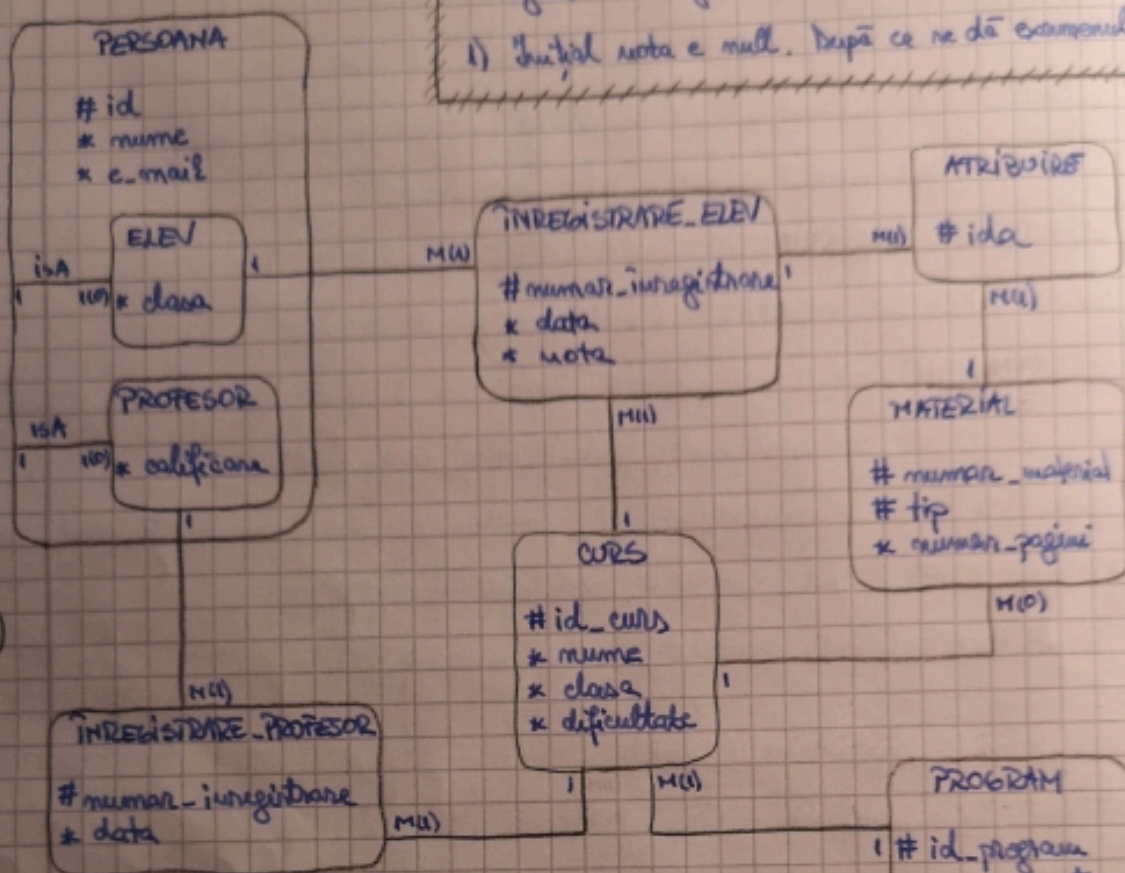 1) Inițial nota e null. După ce se dă examenul
PERSOANA
# id
* nume
* e_mail
isA
1
1(0)
ELEV
* clasa
1
M(1)
isA
1
1(0)
PROFESOR
* calificare
1
M(1)
ÎNREGISTRARE_ELEV
# numar_inregistrare
* data
* nota
1
M(1)
ATRIBUIRE
# ida
M(1)
1
MATERIAL
# numar_material
# tip
* numar_pagini
M(0)
M(1)
1
CURS
# id_curs
* nume
* clasa
* dificultate
1
1
M(1)
ÎNREGISTRARE_PROFESOR
# numar_inregistrare
* data
M(1)
PROGRAM
1
# id_program